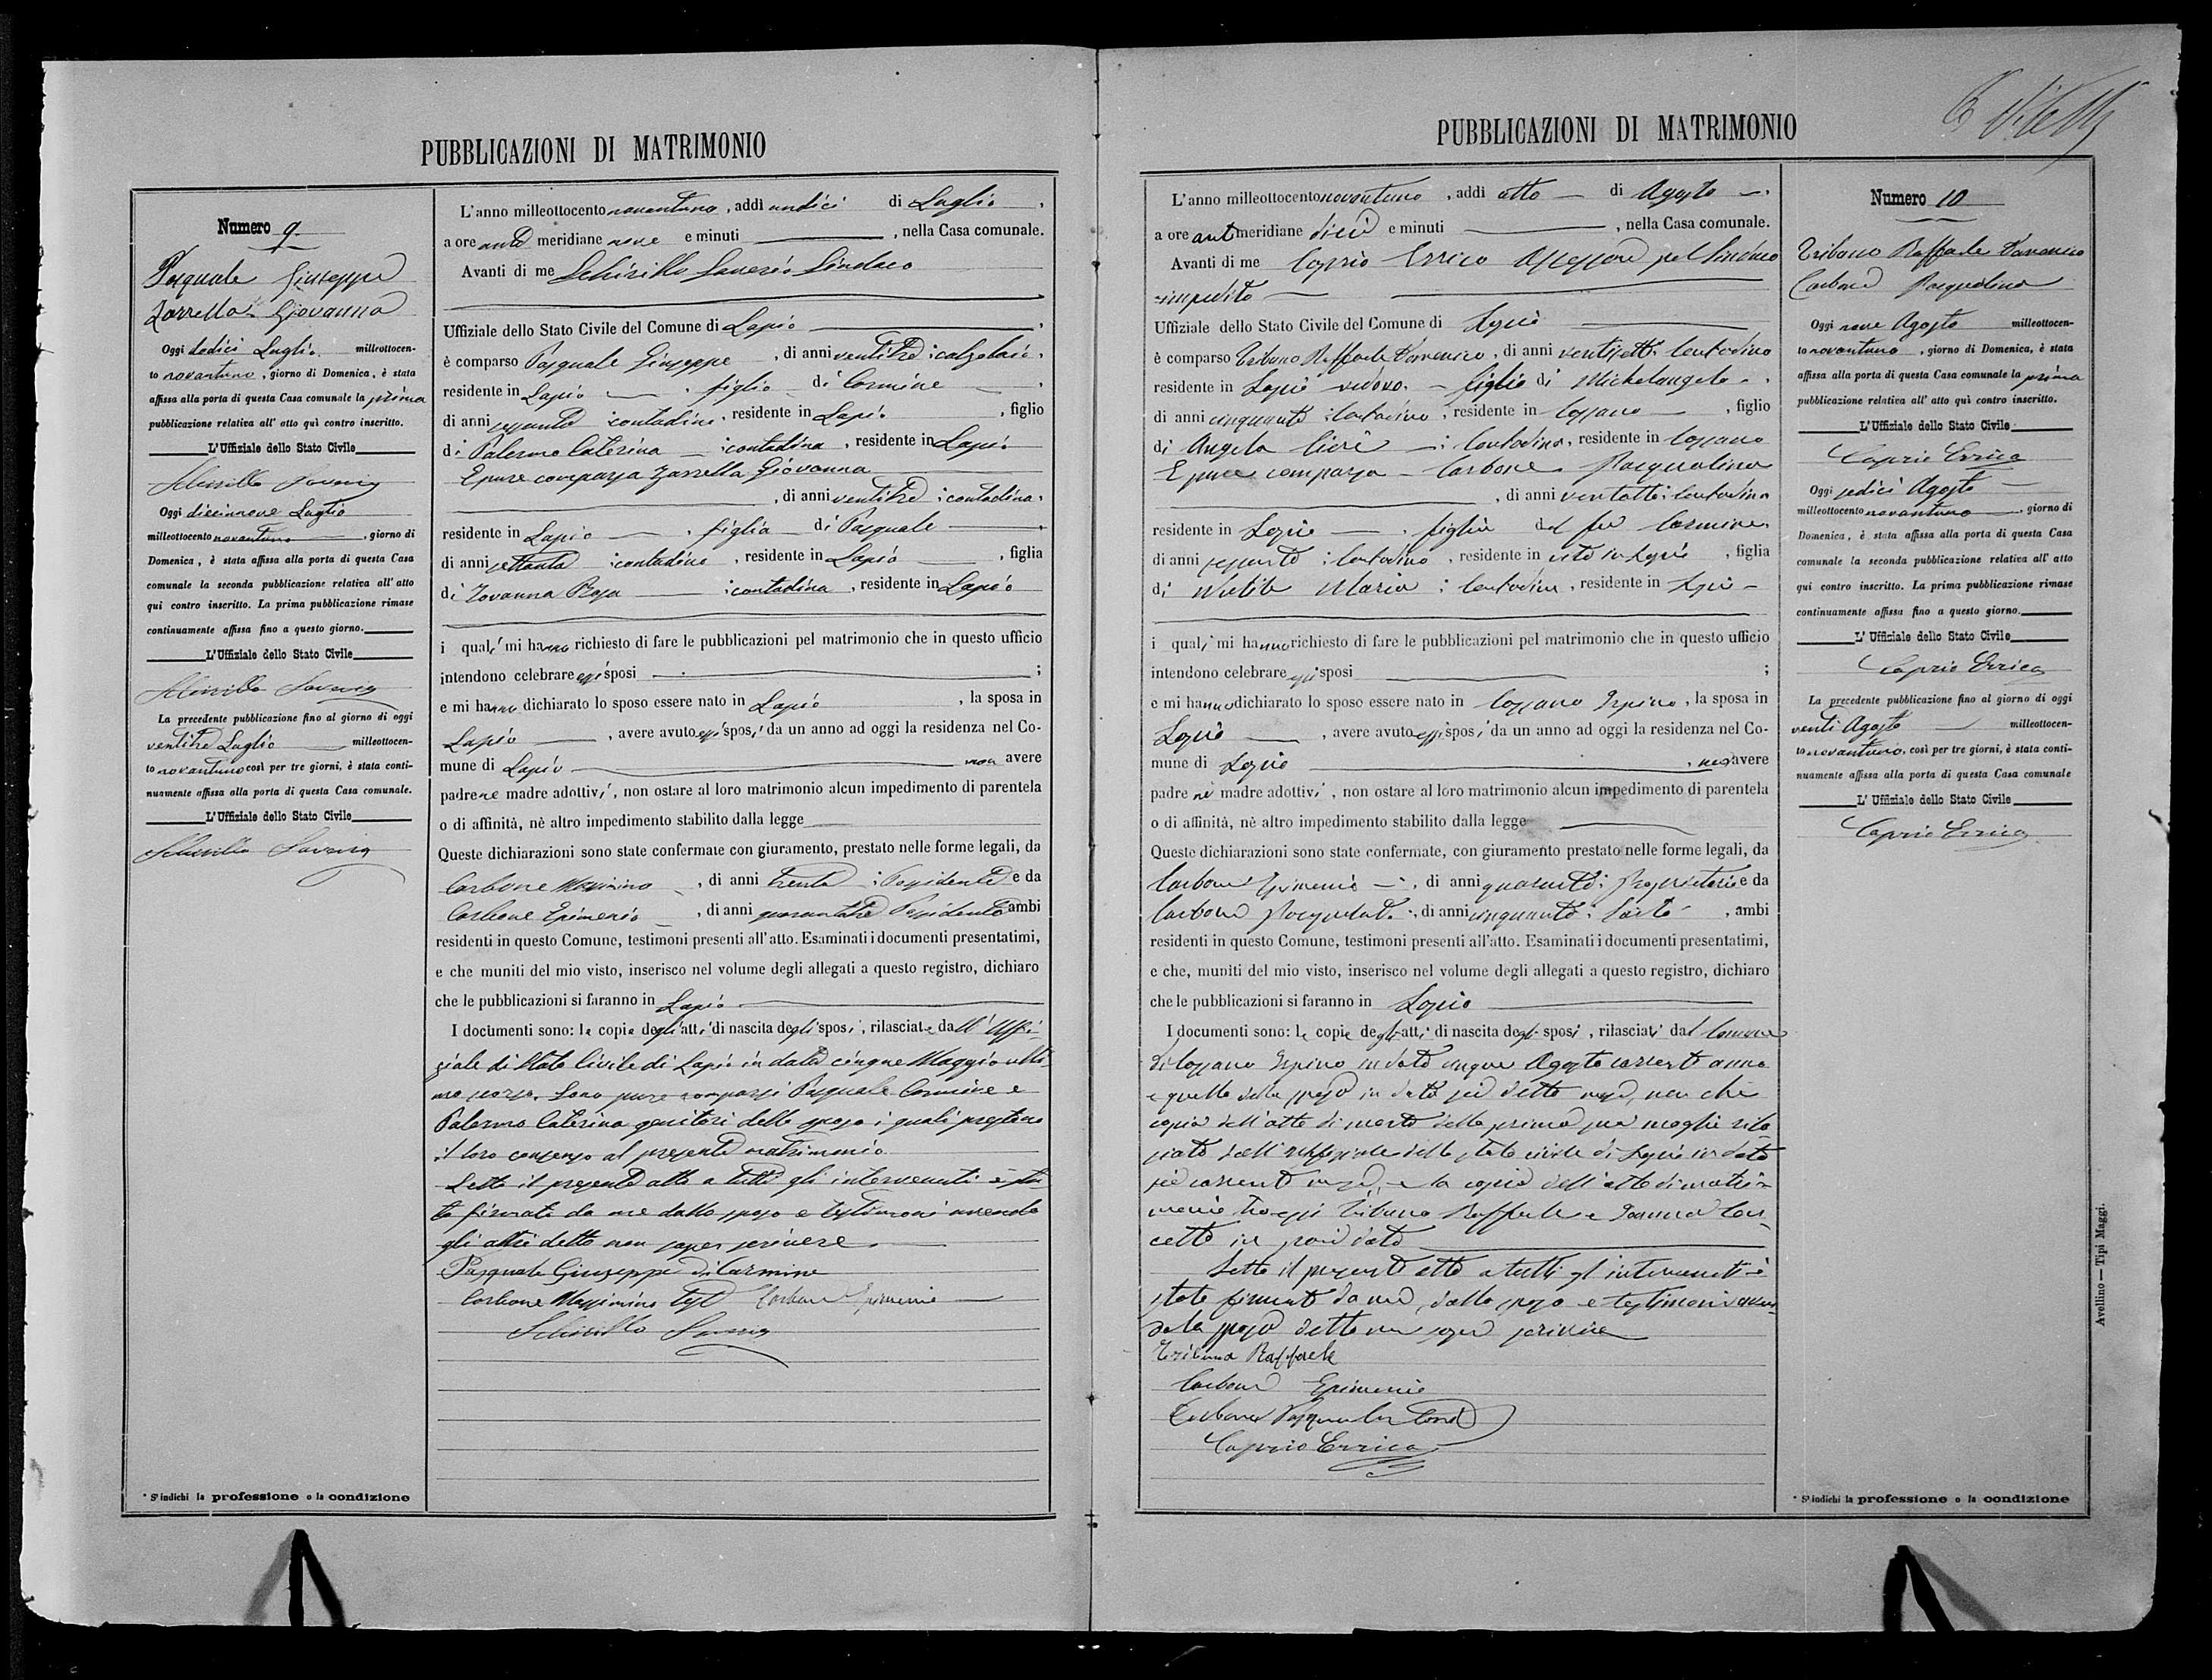 PUBBLICAZIONI DI MATRIMONIO
Numero 9
Pasquale Giuseppe
Zarrella Giovanna
Oggi dodici Luglio milleottocen-
to novantuno, giorno di Domenica, è stata
affissa alla porta di questa Casa comunale la prima
pubblicazione relativa all' atto quì contro inscritto.
L'Uffiziale dello Stato Civile
Schirillo Saverio
Oggi diciannove Luglio
milleottocento novantuno, giorno di
Domenica, è stata affissa alla porta di questa Casa
comunale la seconda pubblicazione relativa all' atto
qui contro inscritto. La prima pubblicazione rimase
continuamente affissa fino a questo giorno.
L'Uffiziale dello Stato Civile
Schirillo Saverio
La precedente pubblicazione fino al giorno di oggi
ventitre Luglio milleottocen-
to novantuno così per tre giorni, è stata conti-
nuamente affissa alla porta di questa Casa comunale.
L'Uffiziale dello Stato Civile
Schirillo Saverio
* S'indichi la professione o la condizione
L'anno milleottocento novantuno, addì undici di Luglio,
a ore anti meridiane nove e minuti , nella Casa comunale.
Avanti di me Schirillo Saverio Sindaco
Uffiziale dello Stato Civile del Comune di Lapio,
è comparso Pasquale Giuseppe, di anni ventitre : calzolaio,
residente in Lapio, figlio di Carmine,
di anni sessanta contadino, residente in Lapio, figlio
di Palermo Caterina : contadina, residente in Lapio
E pure comparsa Zarrella Giovanna
, di anni ventitre : contadina,
residente in Lapio, figlia di Pasquale,
di anni settanta : contadino, residente in Lapio, figlia
di Iovanna Rosa : contadina, residente in Lapio
i quali mi hanno richiesto di fare le pubblicazioni pel matrimonio che in questo ufficio
intendono celebrare essi sposi ;
e mi hanno dichiarato lo sposo essere nato in Lapio, la sposa in
Lapio, avere avuto essi sposi da un anno ad oggi la residenza nel Co-
mune di Lapio non avere
padre nè madre adottivi, non ostare al loro matrimonio alcun impedimento di parentela
o di affinità, nè altro impedimento stabilito dalla legge
Queste dichiarazioni sono state confermate con giuramento, prestato nelle forme legali, da
Carbone Massimino, di anni trenta : Possidente e da
Carbone Epimenio, di anni quarantatre Possidente ambi
residenti in questo Comune, testimoni presenti all'atto. Esaminati i documenti presentatimi,
e che muniti del mio visto, inserisco nel volume degli allegati a questo registro, dichiaro
che le pubblicazioni si faranno in Lapio
I documenti sono: le copie degli atti di nascita degli sposi, rilasciate dall' Uffi-
ziale di Stato Civile di Lapio in data cinque Maggio ulti-
mo scorso. Sono pure comparsi Pasquale Carmine e
Palermo Caterina genitori dello sposo i quali prestano
il loro consenso al presente matrimonio
Letto il presente atto a tutti gli intervenuti è sta-
to firmato da me dallo sposo e testimoni avendo
gli altri detto non saper scrivere.
Pasquale Giuseppe di Carmine
Carbone Massimino test Carbone Epimenio
Schirillo Saverio
PUBBLICAZIONI DI MATRIMONIO
L'anno milleottocento novantuno, addì otto di Agosto,
a ore anti meridiane dieci e minuti , nella Casa comunale.
Avanti di me Caprio Errico Assessore pel Sindaco
impedito
Uffiziale dello Stato Civile del Comune di Lapio
è comparso Tribuno Raffaele Domenico, di anni ventisette. Contadino
residente in Lapio vedovo. figlio di Michelangelo,
di anni cinquanta : Contadino, residente in Cassano, figlio
di Angela : Contadina, residente in Cassano
E pure comparsa Carbone Pasqualina
, di anni ventotto : Contadina
residente in Lapio, figlia del fu Carmine,
di anni sessanta : Contadino, residente in vita in Lapio, figlia
di Maria : Contadina, residente in Lapio
i quali mi hanno richiesto di fare le pubblicazioni pel matrimonio che in questo ufficio
intendono celebrare essi sposi ;
e mi hanno dichiarato lo sposo essere nato in Cassano Irpino, la sposa in
Lapio, avere avuto essi sposi da un anno ad oggi la residenza nel Co-
mune di Lapio, non avere
padre nè madre adottivi, non ostare al loro matrimonio alcun impedimento di parentela
o di affinità, nè altro impedimento stabilito dalla legge
Queste dichiarazioni sono state confermate, con giuramento prestato nelle forme legali, da
Carbone Epimenio, di anni quaranta : Proprietario e da
Carbone Pasquale, di anni cinquanta : Sarto, ambi
residenti in questo Comune, testimoni presenti all'atto. Esaminati i documenti presentatimi,
e che, muniti del mio visto, inserisco nel volume degli allegati a questo registro, dichiaro
che le pubblicazioni si faranno in Lapio
I documenti sono: le copie degli atti di nascita degli sposi, rilasciati dal Comune
di Cassano Irpino in data cinque Agosto corrente anno
e quella della sposa in data sei detto mese, non che
copia dell'atto di morte della prima sua moglie rila-
sciato dall'uffiziale dello stato civile di Lapio in data
sei corrente mese, e la copia dell'atto di matri-
monio tra essi Tribuno Raffaele e Con-
cetta in pari data
Letto il presente atto a tutti gl' intervenuti è
stato firmato da me, dallo sposo e testimoni aven-
do la sposa detto non saper scrivere
Tribuno Raffaele
Carbone Epimenio
Carbone Pasquale
Caprio Errico
Numero 10
Tribuno Raffaele Domenico
Carbone Pasqualina
Oggi nove Agosto milleottocen-
to novantuno, giorno di Domenica, è stata
affissa alla porta di questa Casa comunale la prima
pubblicazione relativa all' atto quì contro inscritto.
L'Uffiziale dello Stato Civile
Caprio Errico
Oggi sedici Agosto
milleottocento novantuno, giorno di
Domenica, è stata affissa alla porta di questa Casa
comunale la seconda pubblicazione relativa all' atto
qui contro inscritto. La prima pubblicazione rimase
continuamente affissa fino a questo giorno.
L' Uffiziale dello Stato Civile
Caprio Errico
La precedente pubblicazione fino al giorno di oggi
venti Agosto milleottocen-
to novantuno, così per tre giorni, è stata conti-
nuamente affissa alla porta di questa Casa comunale
L' Uffiziale dello Stato Civile
Caprio Errico
* S'indichi la professione o la condizione
Avellino — Tipi Maggi.